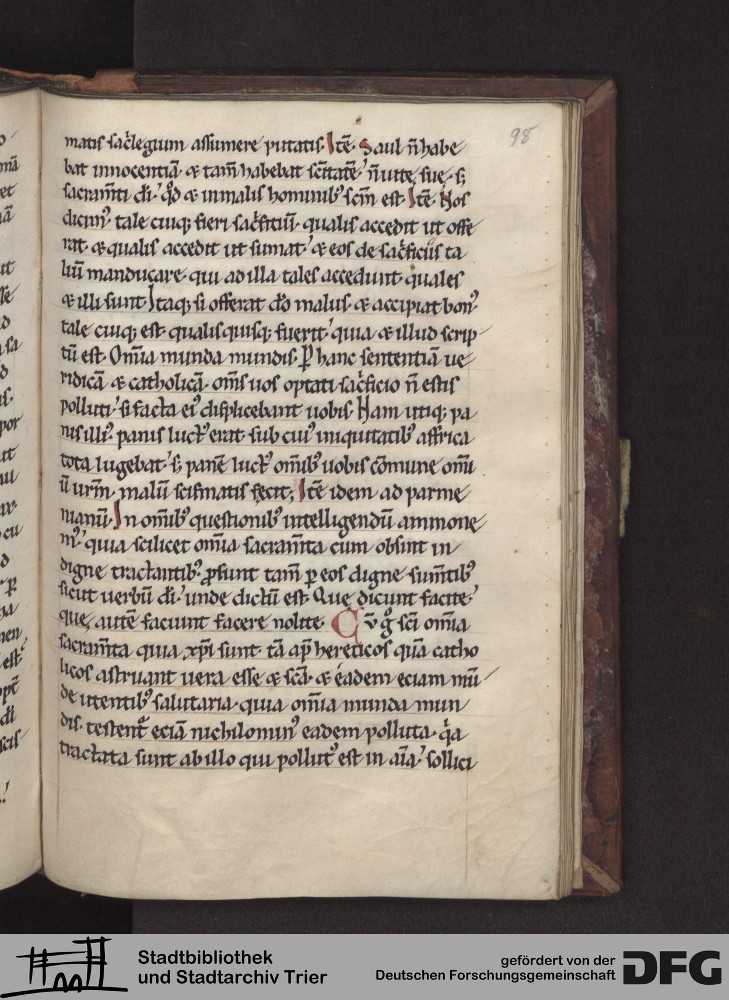 98
matis sac̄legium assumere putatis. Itē. Saul n̄ habe
bat innocentiā & tam̄ habebat sc̄itatē. n̄ uitę suę. s;
sacram̄ti di̅. qd̄ & in malis hominib' sc̄m est. Itē. Nos
dicim' tale cuiq; fieri sac̄ficiū. qualis accedit ut offe
rat. & qualis accedit ut sumat. & eos de sac̄ficiis ta
liū manducare. qui ad illa tales accedunt. quales
& illi sunt. Itaq; si offerat d̄o malus. & accipiat bon'.
tale cuiq; est qualis quisq; fuerit. quia & illud scrip
tū est. Om̄ia munda mundis. P hanc sententiā ue
ridicā & catholicā. om̄s uos optati sac̄ficio n̄ estis
polluti. si facta ei' displicebant uobis. Nam utiq; pa
nis illi' panis luct' erat. sub cui' iniquitatib' affrica
tota lugebat. s; panē luct' om̄ib' uobis cōmune om̄i
ū ur̄m malū scismatis fecit; Itē idem ad parme
nianū. In om̄ib' questionib' intelligendū ammone
m'. quia scilicet om̄ia sacram̄ta cum obsint in
digne tractantib'. ꝓsunt tam̄ p eos digne sum̄tib'
sicut uerbū di̅. unde dictū est. Quę dicunt facite.
quę autē faciunt facere nolite. Cū g̊ sc̄i om̄ia
sacram̄ta quia xp̄i sunt. tā ap̄ hereticos quā catho
licos astruant uera esse & sc̄a. & eadem eciam mū
de utentib' salutaria. quia om̄ia munda mun
dis. testent' eciā nichilomin' eadem polluta. q̄a
tractata sunt ab illo qui pollut' est in aīa. sollici
Stadtbibliothek
und Stadtarchiv Trier
gefördert von der
Deutschen Forschungsgemeinschaft
DFG